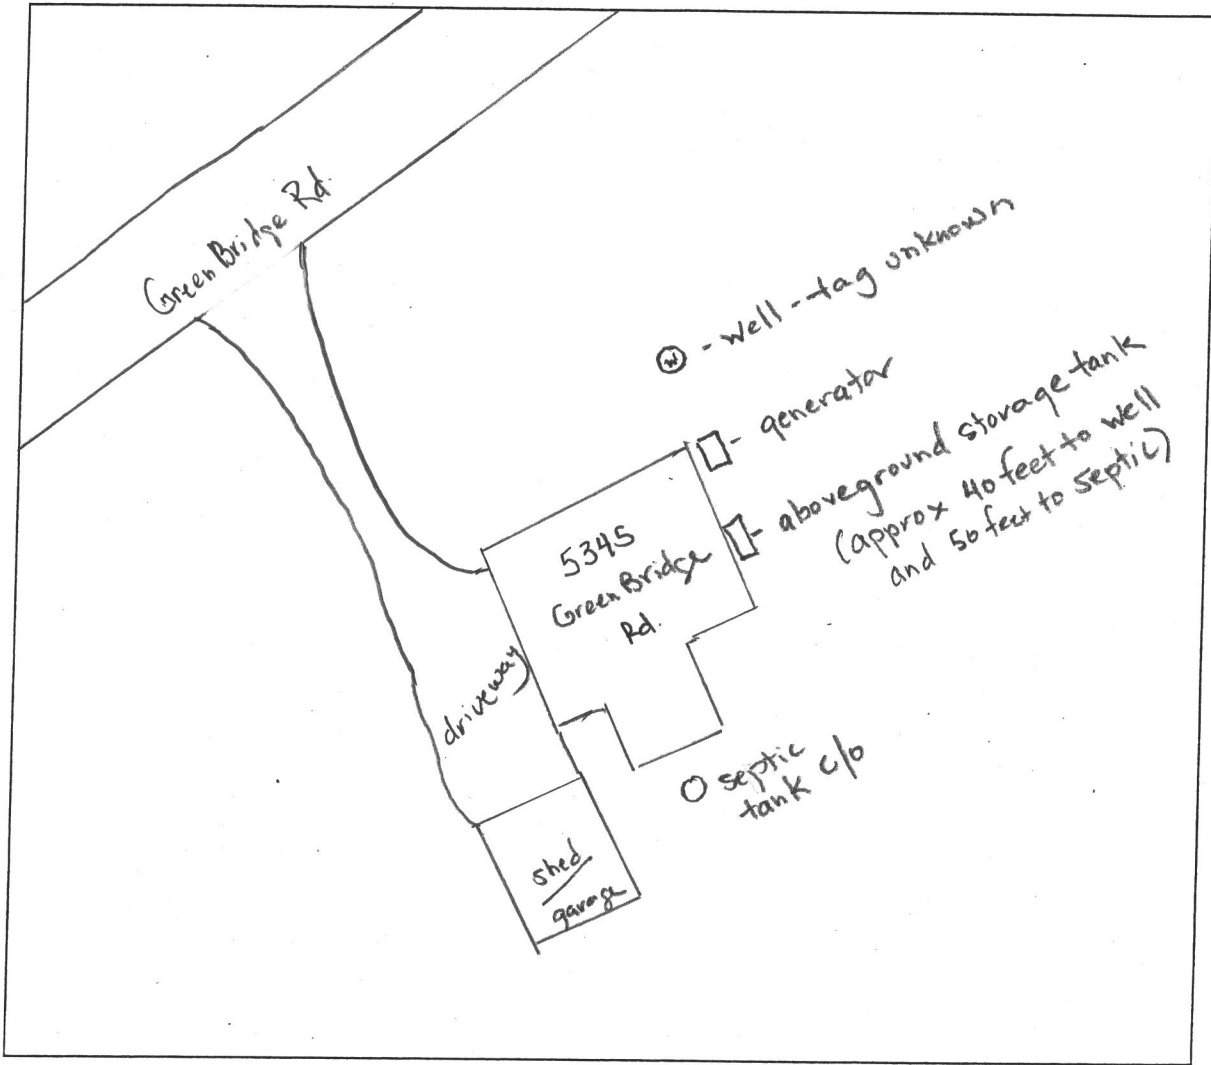 Green Bridge Rd.
W - well - tag unknown
- generator
- aboveground storage tank
(approx 40 feet to well
and 50 feet to septic)
5345
Green Bridge
Rd.
driveway
septic
tank c/o
shed/
garage